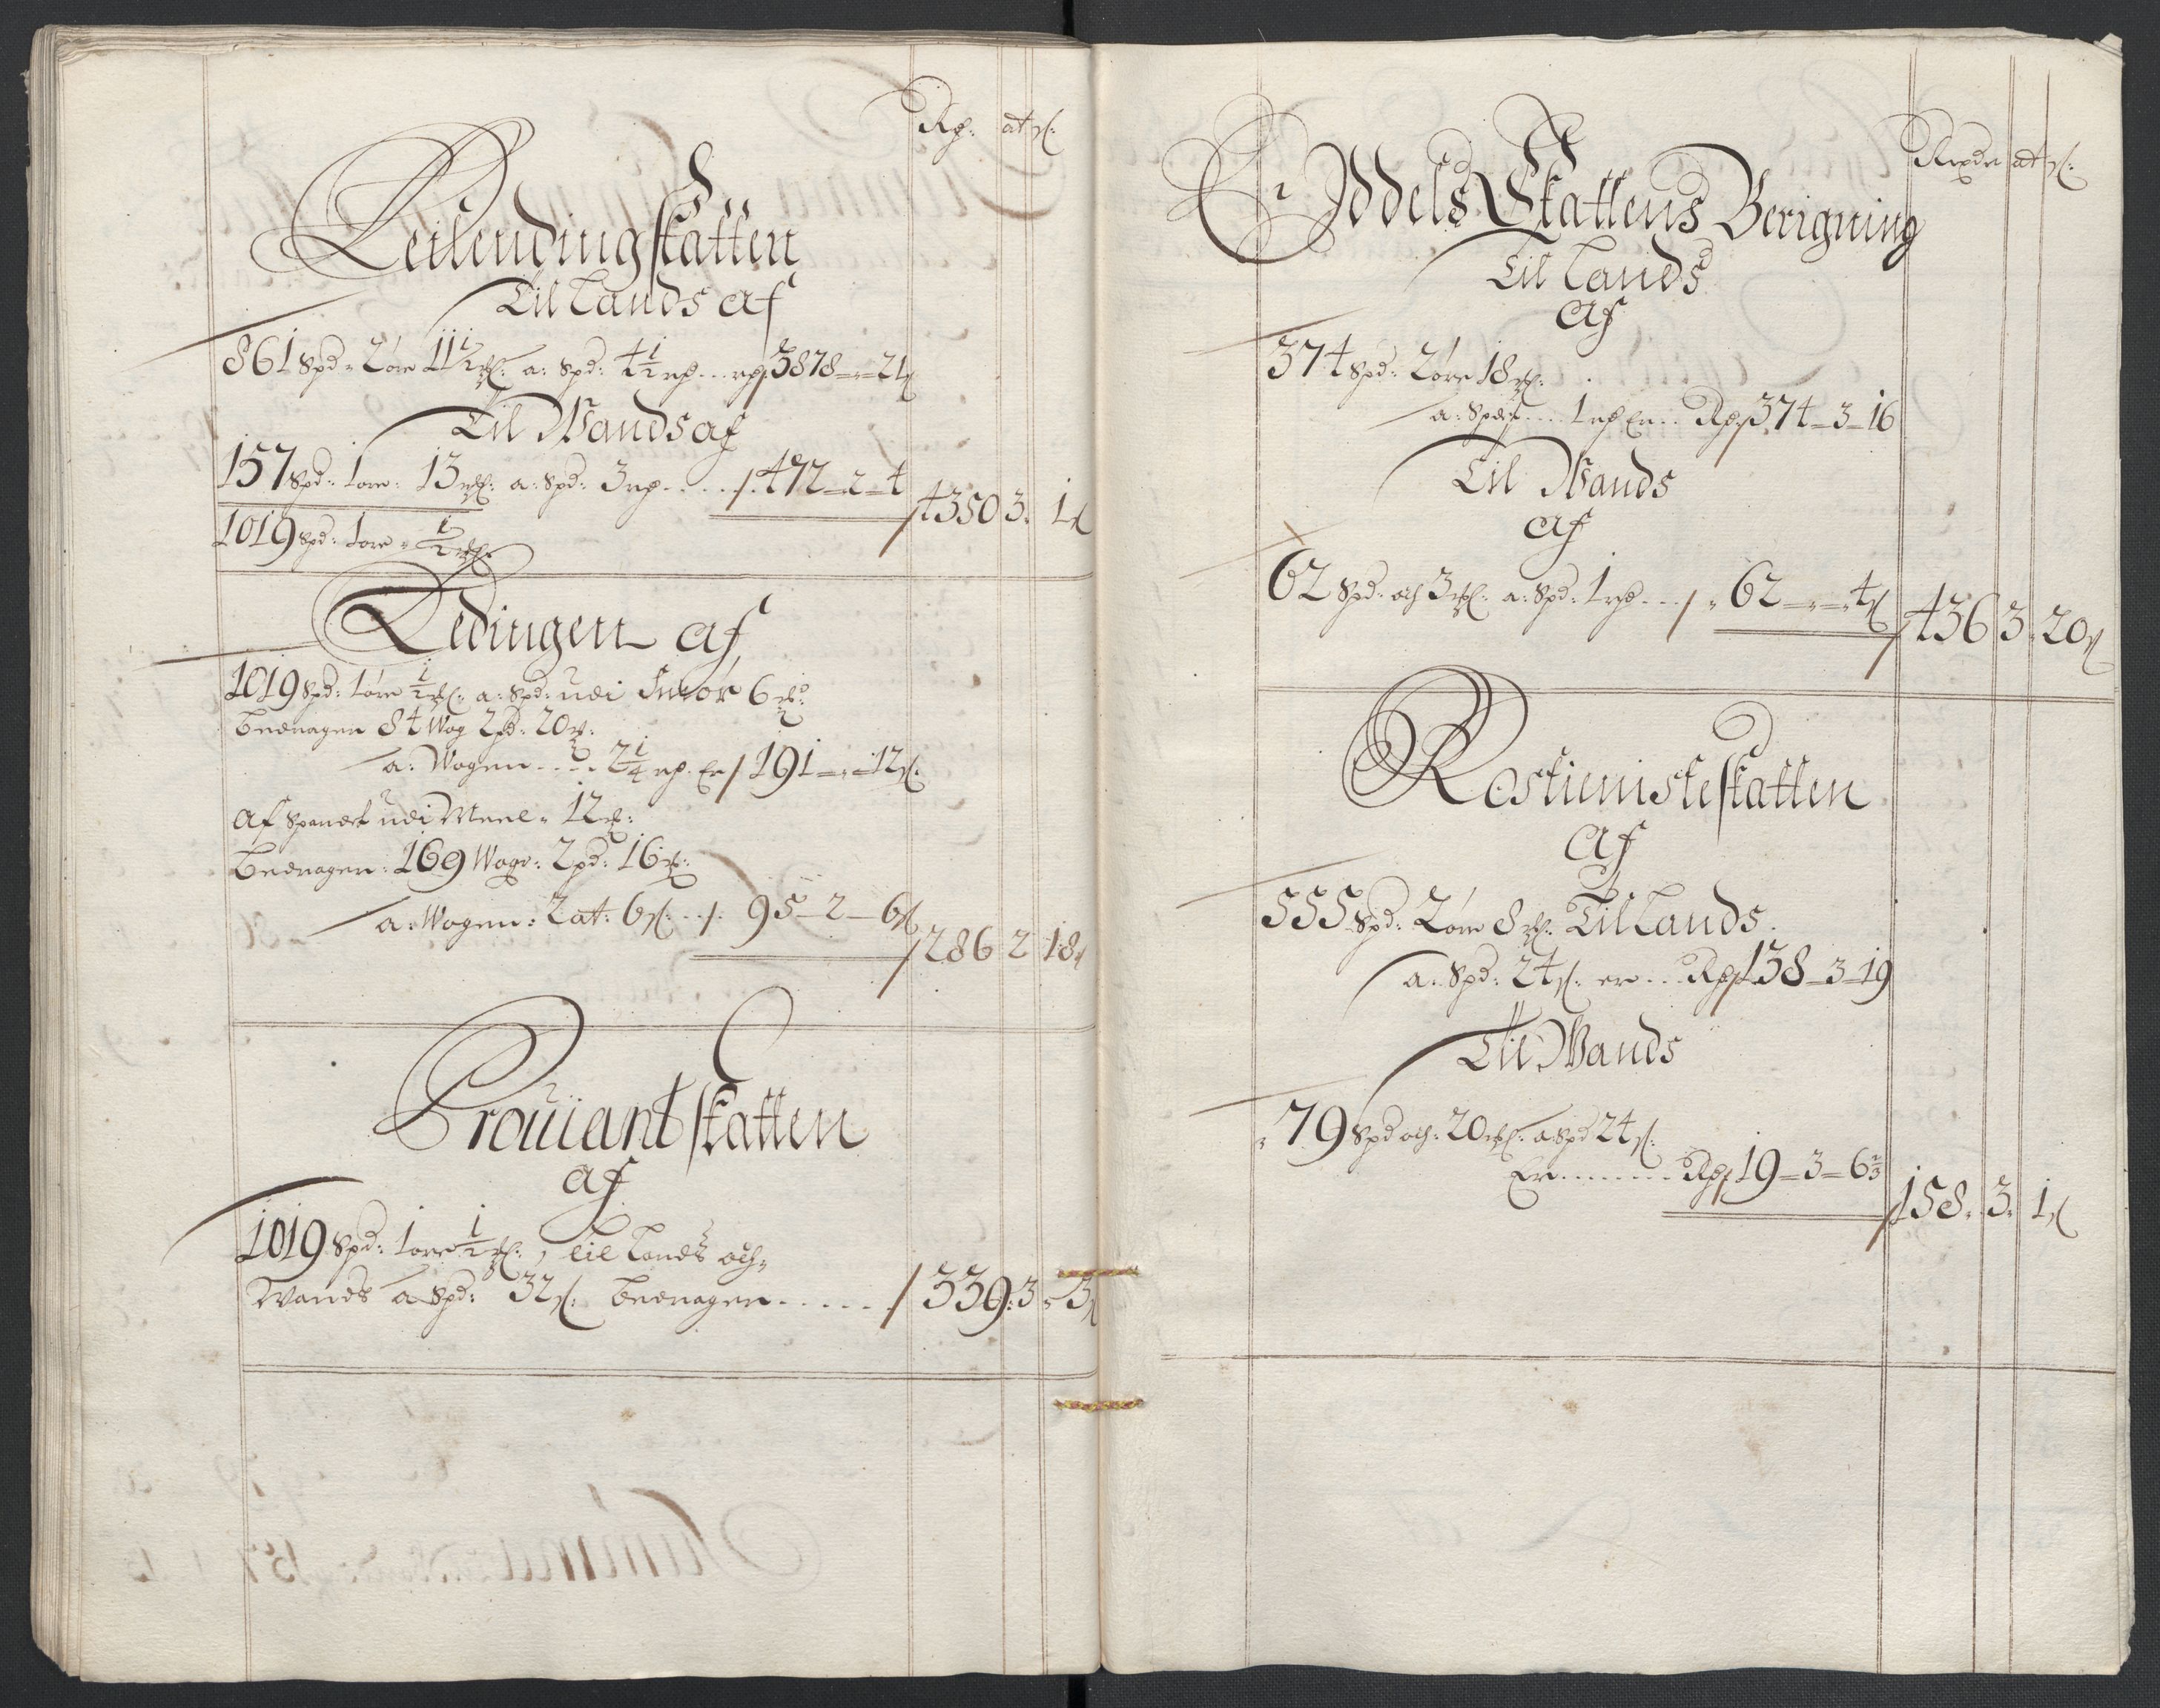 Rd: at s:
Leilendingskatten
Til Lands af
861 Spd: 2 øre 11½ mkl: a: Spd: 4½ rd ... rd 3878 - " - 21 s
Til Wands af
157 Spd: 1 øre: 13 mkl: a: Spd: 3 rd ..... /. 472 - 2 - 4
4350 3. 1 s
1019 Spd: 1 øre " ½ mkl:
Ledingen af
1019 Spd: 1 øre ½ mkl: a: Spd: udi Smør 6 mk:
bedragen 84 Wog 2 pd: 20 mk:
a: Wogen .... 2¼ rd. Er / 191 - " - 12 s:
Af Spandet udi Meel " 12 mk:
bedragen: 169 Woge: 2 pd: 16 mk:
a: Wogen: 2 at: 6 s: .. /. 95 - 2 - 6 s
286 2 18 s
Prouiantskatten
af
1019 Spd: 1 øre ½ mkl:, til Lands och
Wands a Spd: 32 s: bedragen ...... / 339: 3 " 3 s
Rixdr at s:
Oddels Skattens Berigning
Til Lands
Af
374 Spd: 2 øre 18 mkl:
a: Spdt .... 1 rd Er .. Rd 374 - 3 - 16
Til Wands
af
62 Spd: och 3 mkl: a: Spd: 1 rd ... / " 62 - " - 4 s
436 3 20 s
Rostienisteskatten
Af
555 Spd: 2 øre 8 mkl: Til Lands.
a: Spd: 24 s: er ... Rd 138 - 3 - 19
Til Wands
" 79 Spd och: 20 mkl: a Spd 24 s:
Er ........ Rd 19 - 3 - 6⅔
158. 3. 1 s